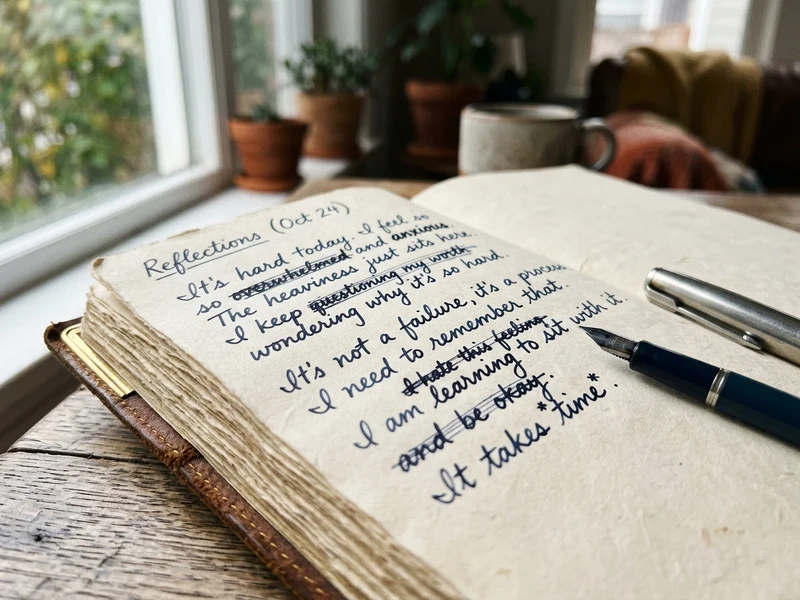 Reflections (Oct 24)
It's hard today. I feel so
so overwhelmed and anxious.
The heaviness just sits here.
I keep questioning my worth
wondering why it's so hard.
It's not a failure, it's a process
I need to remember that.
I hate this feeling
I am learning to sit with it.
and be okay.
It takes *time*.